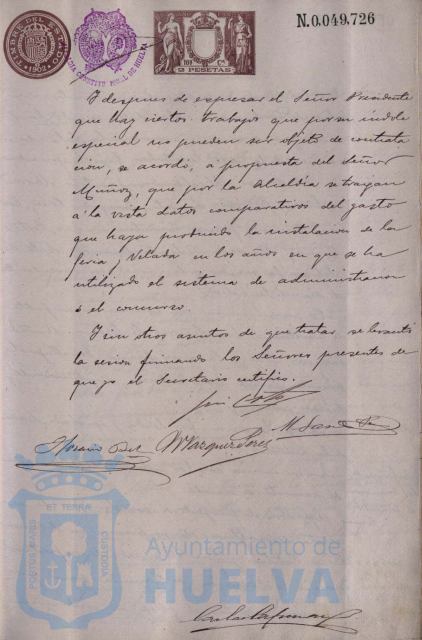 N.0.049.726
TIMBRE DEL ESTADO
1902
DE HUELVA
2 PESETAS
I despues de expresar el Señor Presidente
que hay ciertos trabajos que por su indole
especial no pueden ser objeto de contrata
cion, se acordó, á propuesta del Señor
Muñoz, que por la Alcaldia se traigan
á la vista datos comparativos del gasto
que haya producido la instalacion de la
feria y Velada en los años en que se ha
utilizado el sistema de administracion
ó el concurso.
I sin otros asuntos de que tratar se levantó
la sesion firmando los Señores presentes de
que yo el Secretario certifico.
Horacio Bel Vazquez Perez
PORTUS MARIS ET TERRÆ CUSTODIA
Ayuntamiento de
HUELVA